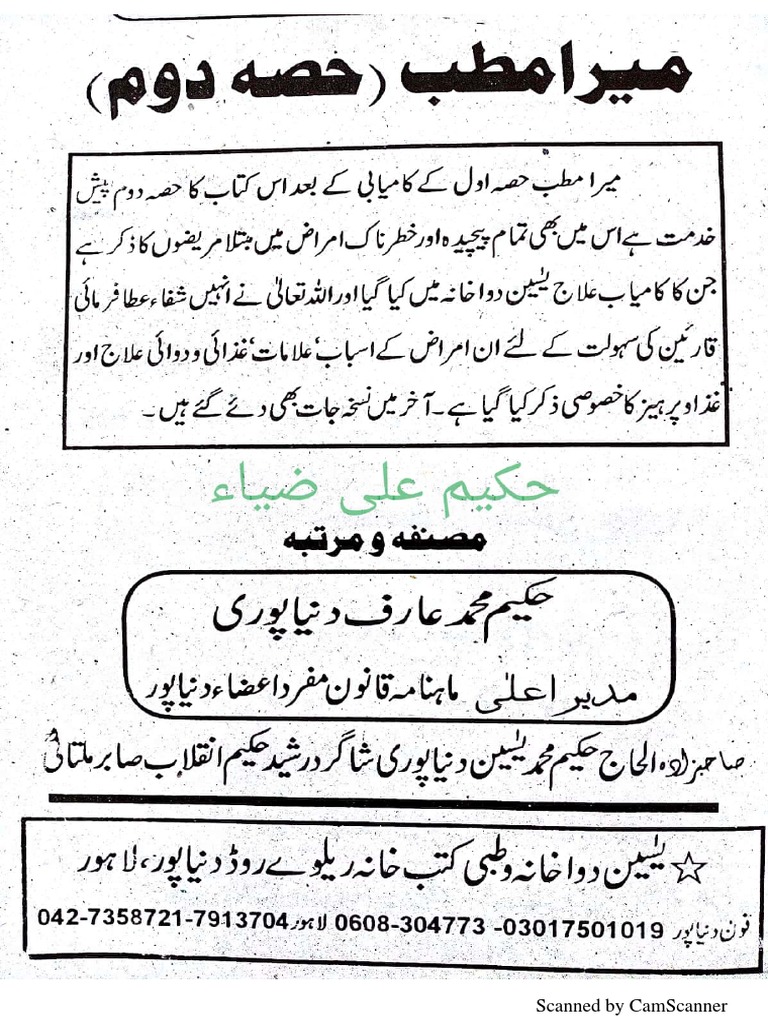 میرا مطب (حصہ دوم)
میرا مطب حصہ اول کے کامیابی کے بعد اس کتاب کا حصہ دوم پیش
خدمت ہے اس میں بھی تمام پیچیدہ اور خطرناک امراض میں مبتلا مریضوں کا ذکر ہے
جن کا کامیاب علاج یٰسین دواخانہ میں کیا گیا اور اللہ تعالیٰ نے انہیں شفاء عطا فرمائی
قارئین کی سہولت کے لئے ان امراض کے اسباب‘ علامات‘ غذائی و دوائی علاج اور
غذا و پرہیز کا خصوصی ذکر کیا گیا ہے۔ آخر میں نسخہ جات بھی دئے گئے ہیں۔
حکیم علی ضیاء
مصنفہ و مرتبہ
حکیم محمد عارف دنیاپوری
مدیر اعلیٰ ماہنامہ قانون مفرد اعضاء دنیاپور
صاحبزادہ الحاج حکیم محمد یٰسین دنیاپوری شاگرد رشید حکیم انقلاب صابر ملتانیؒ
☆ یٰسین دواخانہ و طبی کتب خانہ ریلوے روڈ دنیاپور، لاہور
فون دنیاپور 03017501019- 0608-304773 لاہور 042-7358721-7913704
Scanned by CamScanner